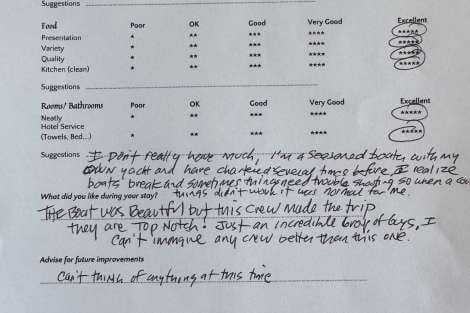 Suggestions
Food Poor OK Good Very Good Excellent
Presentation * ** *** **** *****
Variety * ** *** **** *****
Quality * ** *** **** *****
Kitchen (clean) * ** *** **** *****
Suggestions
Rooms/ Bathrooms Poor OK Good Very Good Excellent
Neatly * ** *** **** *****
Hotel Service
(Towels, Bed...) * ** *** **** *****
Suggestions I Don't really have much, I'm a seasoned boater, with my
own yacht and have chartered several times before I realize
boats break and sometimes things need trouble shooting so when a
things didn't work it was normal for me.
What did you like during your stay?
The Boat was Beautiful but this Crew made the trip
they are Top Notch! Just an incredible group of Guys, I
Can't imagine any crew better than this one.
Advise for future improvements
Can't think of anything at this time